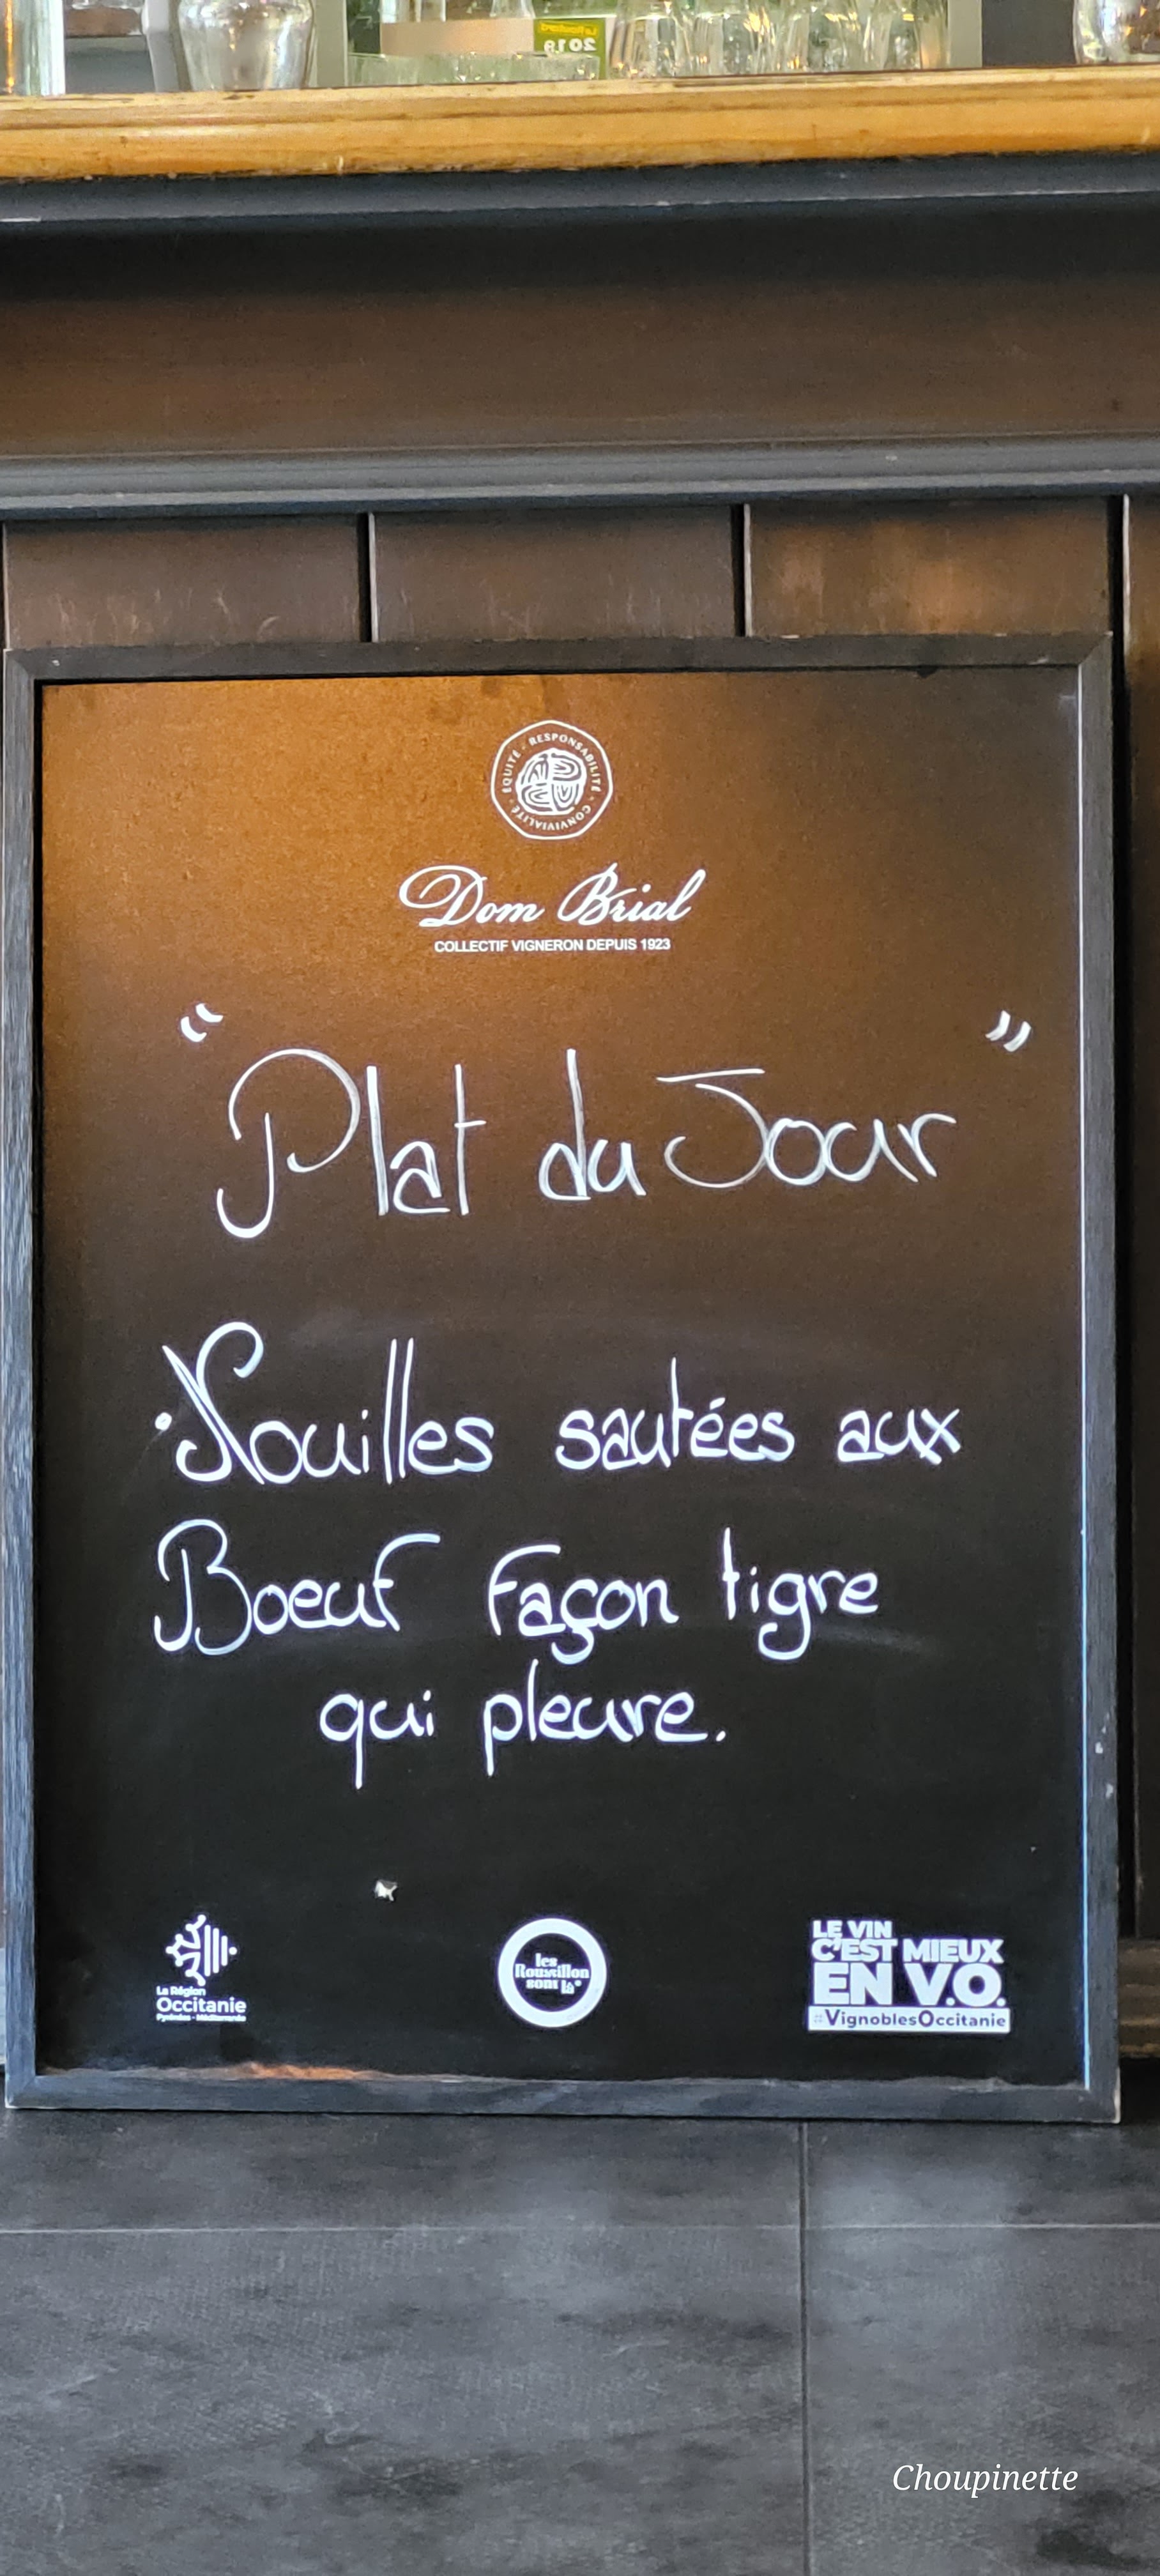 2018
ÉQUITÉ - RESPONSABILITÉ - CONVIVIALITÉ -
Dom Brial
COLLECTIF VIGNERON DEPUIS 1923
“ ”
Plat du Jour
•Nouilles sautées aux
Boeuf Façon tigre
qui pleure.
La Région
Occitanie
Pyrénées - Méditerranée
les
Roussillon
sont là
LE VIN
C'EST MIEUX
EN V.O.
#VignoblesOccitanie
Choupinette